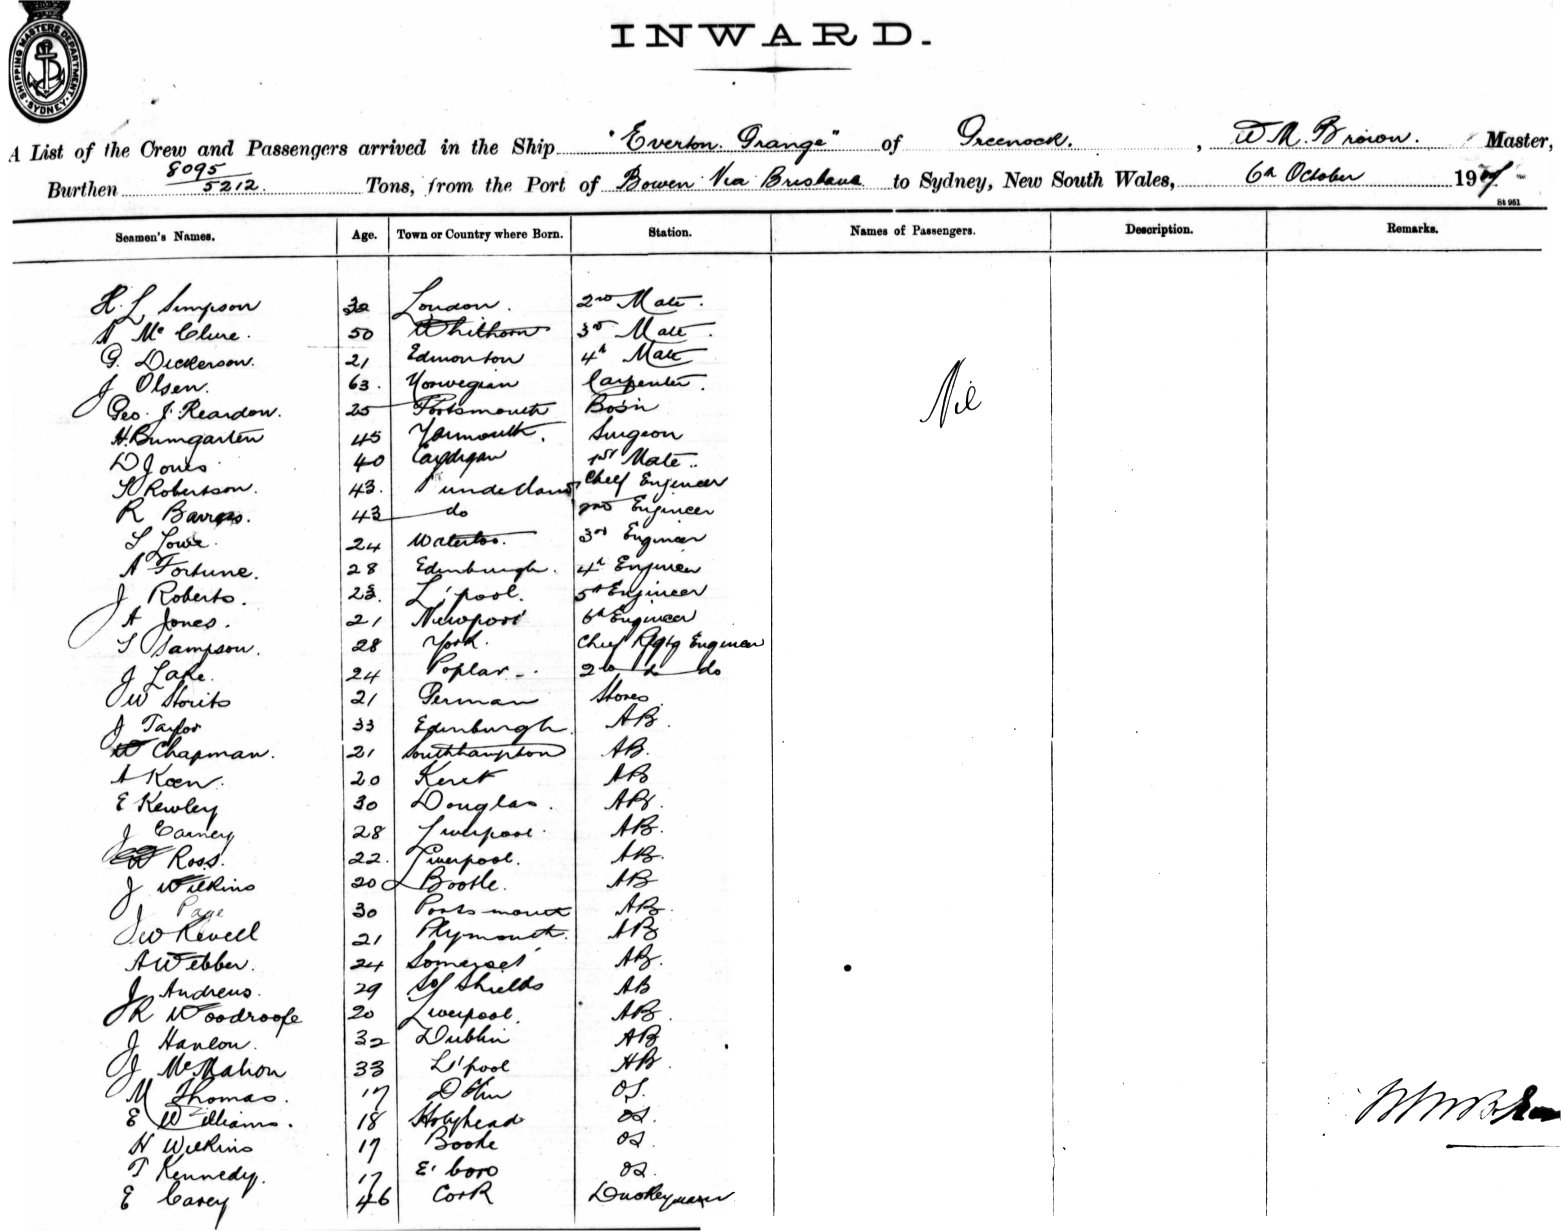 SHIPPING MASTERS DEPARTMENT. SYDNEY.
INWARD.
A List of the Crew and Passengers arrived in the Ship "Everton Grange" of Greenock. , W M. Brown. Master,
Burthen 8095/5212. Tons, from the Port of Bowen Via Brisbane to Sydney, New South Wales, 6th October 190
St 951
Seamen's Names. Age. Town or Country where Born. Station. Names of Passengers. Description. Remarks.
H. L Simpson 32 London. 2nd Mate.
A Mc Clure. 50 Whithorn 3rd Mate.
G. Dickerson. 21 Edmonton 4th Mate
J Olsen. 63. Norwegian Carpenter.
Geo. J. Reardon. 25 Portsmouth Bosn
Nil
H. Bumgarten 45 Yarmouth. Surgeon
D Jones 40 Cardigan 1st Mate.
Robertson. 43. Sunderland Chief Engineer
R 43 do 2nd Engineer
Lowe. 24 Waterloo. 3rd Engineer
A Fortune. 28 Edinburgh. 4th Engineer
J Roberts. L'pool. 5th Engineer
A Jones. 21 Newport 6th Engineer
S Sampson. 28 York. Chief Rfgtg Engineer
J Lake. 24 Poplar 2nd do do
W Storits 21 German Stores
J Taylor 33 Edinburgh. AB.
W Chapman. 21 Southhampton AB.
A Keen. 20 Kent AB
E Kewley 30 Douglas. AB.
J Carney 28 Liverpool. AB.
W Ross. 22. Liverpool. AB.
J Wilkins 20 Bootle. AB
Page 30 Portsmouth AB.
J W Revell 21 Plymouth. AB
A Webber. 24 Somerset AB.
J Andrews. 29 So Shields AB
R Woodroofe 20 Liverpool. AB.
J Hanlon. 32 Dublin AB
J McMahon 33 L'pool AB.
M Thomas. 17 OS.
E Williams. 18 Holyhead OS.
H Wilkins 17 Bootle OS.
T Kennedy. 17 E' boro OS.
E Carey 46 Cork Donkeyman